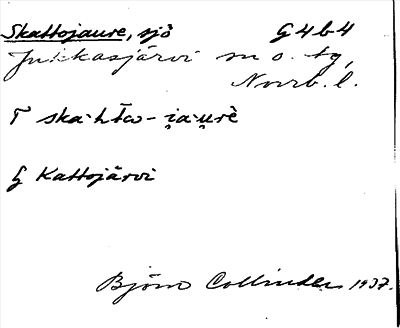 Skattojaure, sjö G4b4
Jukkasjärvi sn o. tg,
Norrb. l.
T ska·htω- i̯a·u̯rè
ξ Kattojärvi
Björn Collinder 1937.